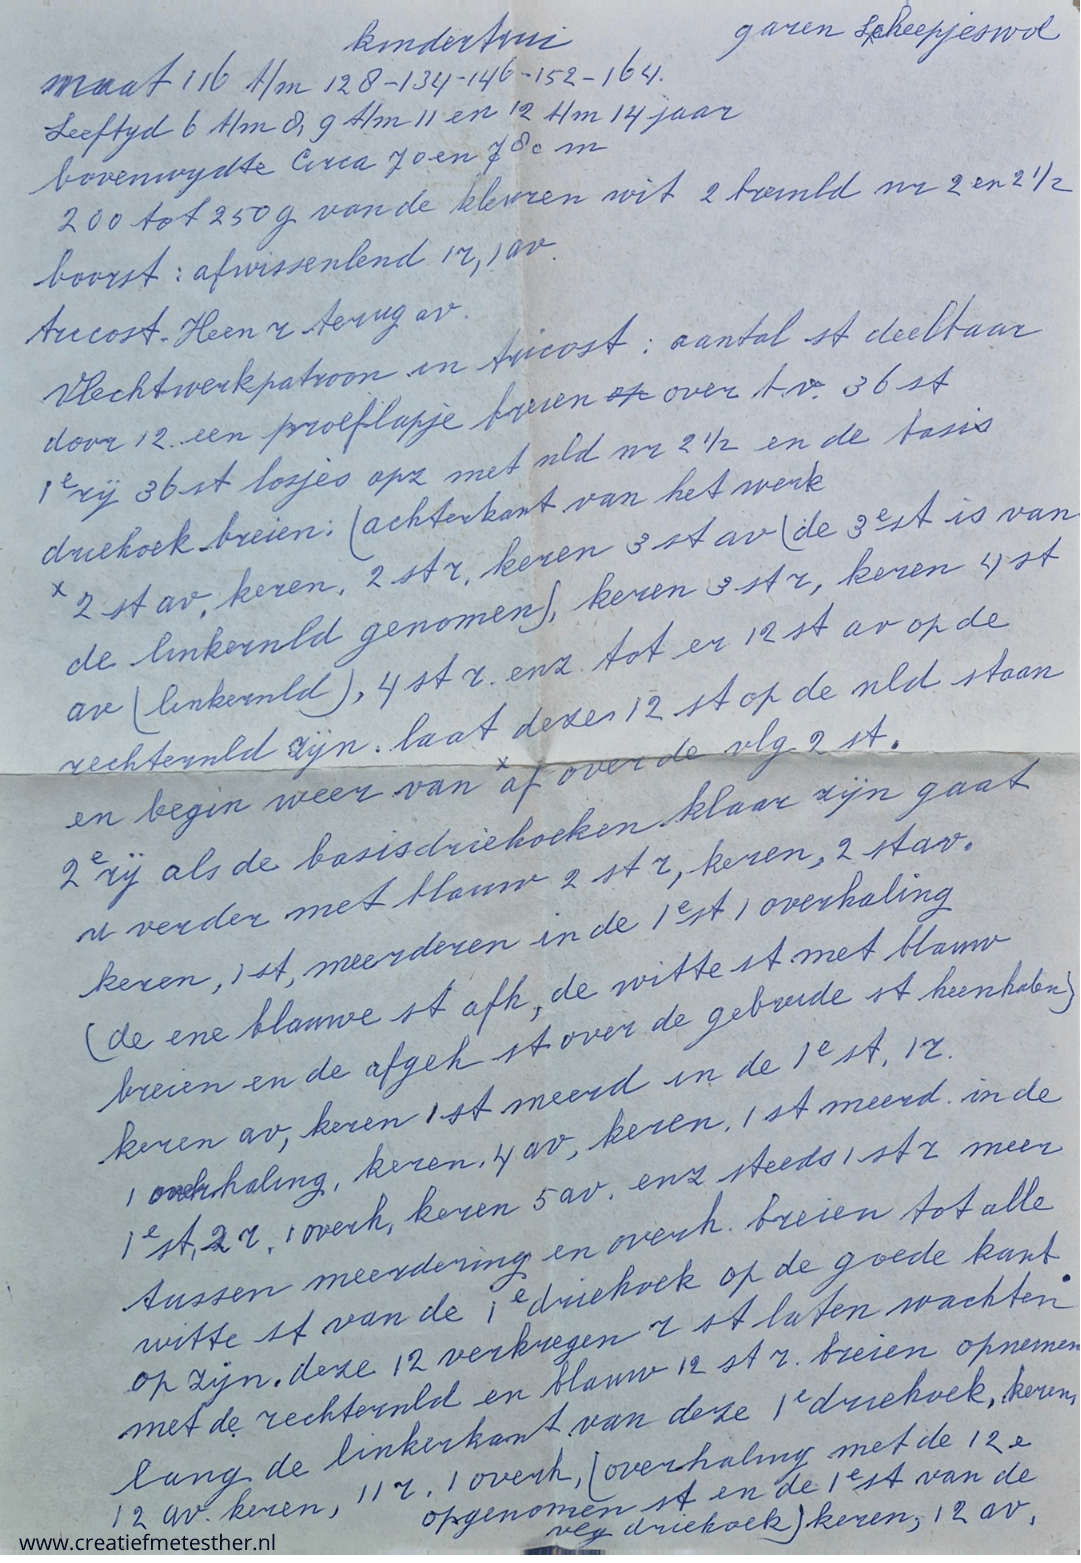 kindertrui garen Scheepjeswol
maat 116 t/m 128-134-146-152-164.
Leeftyd 6 t/m 8, 9 t/m 11 en 12 t/m 14 jaar
bovenwydte Circa 70 en 78 c m
200 tot 250 g van de kleuren wit 2 breinld nr 2 en 2 1/2
boorst: afwissenlend 1 r, 1 av.
tricost. Heen r terug av.
Vlechtwerkpatroon in tricost: aantal st deelbaar
door 12. een proeflapje breien op over b.v. 36 st
1e rij 36 st losjes opz met nld nr 2 1/2 en de basis
driehoek breien: (achterkant van het werk
x 2 st av, keren, 2 st r, keren 3 st av (de 3e st is van
de linkernld genomen), keren 3 st r, keren 4 st
av (linkernld), 4 st r. enz. tot er 12 st av op de
rechternld zijn. laat deze 12 st op de nld staan
en begin weer van x af over de vlg 2 st.
2e rij als de basisdriehoeken klaar zijn gaat
u verder met blauw 2 st r, keren, 2 st av.
keren, 1 st, meerderen in de 1e st 1 overhaling
(de ene blauwe st afh, de witte st met blauw
breien en de afgeh st over de gebreide st heenhalen)
keren av, keren 1 st meerd in de 1e st, 1 r.
1 overhaling, keren. 4 av, keren. 1 st meerd. in de
1e st, 2 r. 1 overh, keren 5 av. enz steeds 1 st r meer
tussen meerdering en overh. breien tot alle
witte st van de 1e driehoek op de goede kant
op zijn. deze 12 verkregen r st laten wachten
met de rechternld en blauw 12 st r. breien opnemen
lang de linkerkant van deze 1e driehoek, keren,
12 av. keren, 11 r. 1 overh, (overhaling met de 12 e
opgenomen st en de 1e st van de
vlg driehoek) keren, 12 av,
www.creatiefmetesther.nl